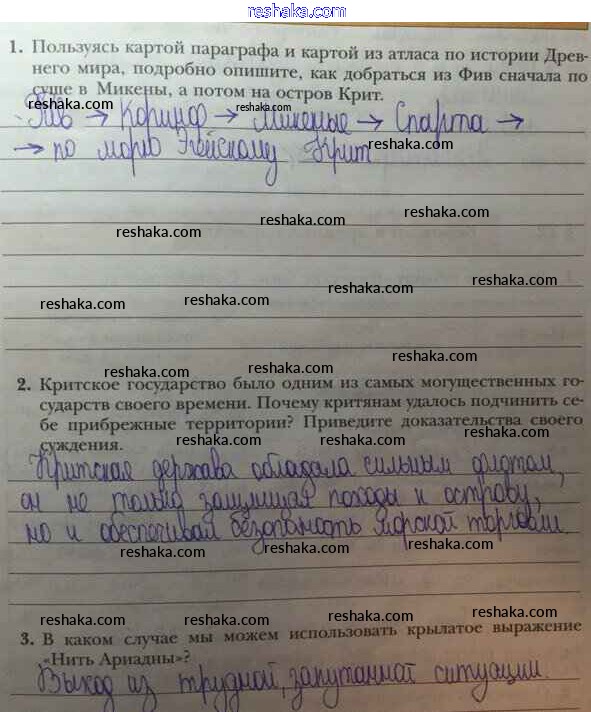 reshaka.com
1. Пользуясь картой параграфа и картой из атласа по истории Древ-
reshaka.com
него мира, подробно опишите, как добраться из Фив сначала по
суше в Микены, а потом на остров Крит.
reshaka.com reshaka.com
Фив → Коринф → Микены → Спарта →
→ по морю Эгейскому Крит
reshaka.com
reshaka.com
reshaka.com reshaka.com
reshaka.com
reshaka.com reshaka.com
reshaka.com
reshaka.com
2. Критское государство было одним из самых могущественных го-
сударств своего времени. Почему критянам удалось подчинить се-
бе прибрежные территории? Приведите доказательства своего
reshaka.com reshaka.com
суждения.
Критская держава обладала сильным флотом,
reshaka.com reshaka.com
он не только защищал походы к острову,
но и обеспечивал безопасность морской торговли.
reshaka.com reshaka.com
reshaka.com reshaka.com
3. В каком случае мы можем использовать крылатое выражение
«Нить Ариадны»?
reshaka.com reshaka.com
Выход из трудной, запутанной ситуации.
reshaka.com